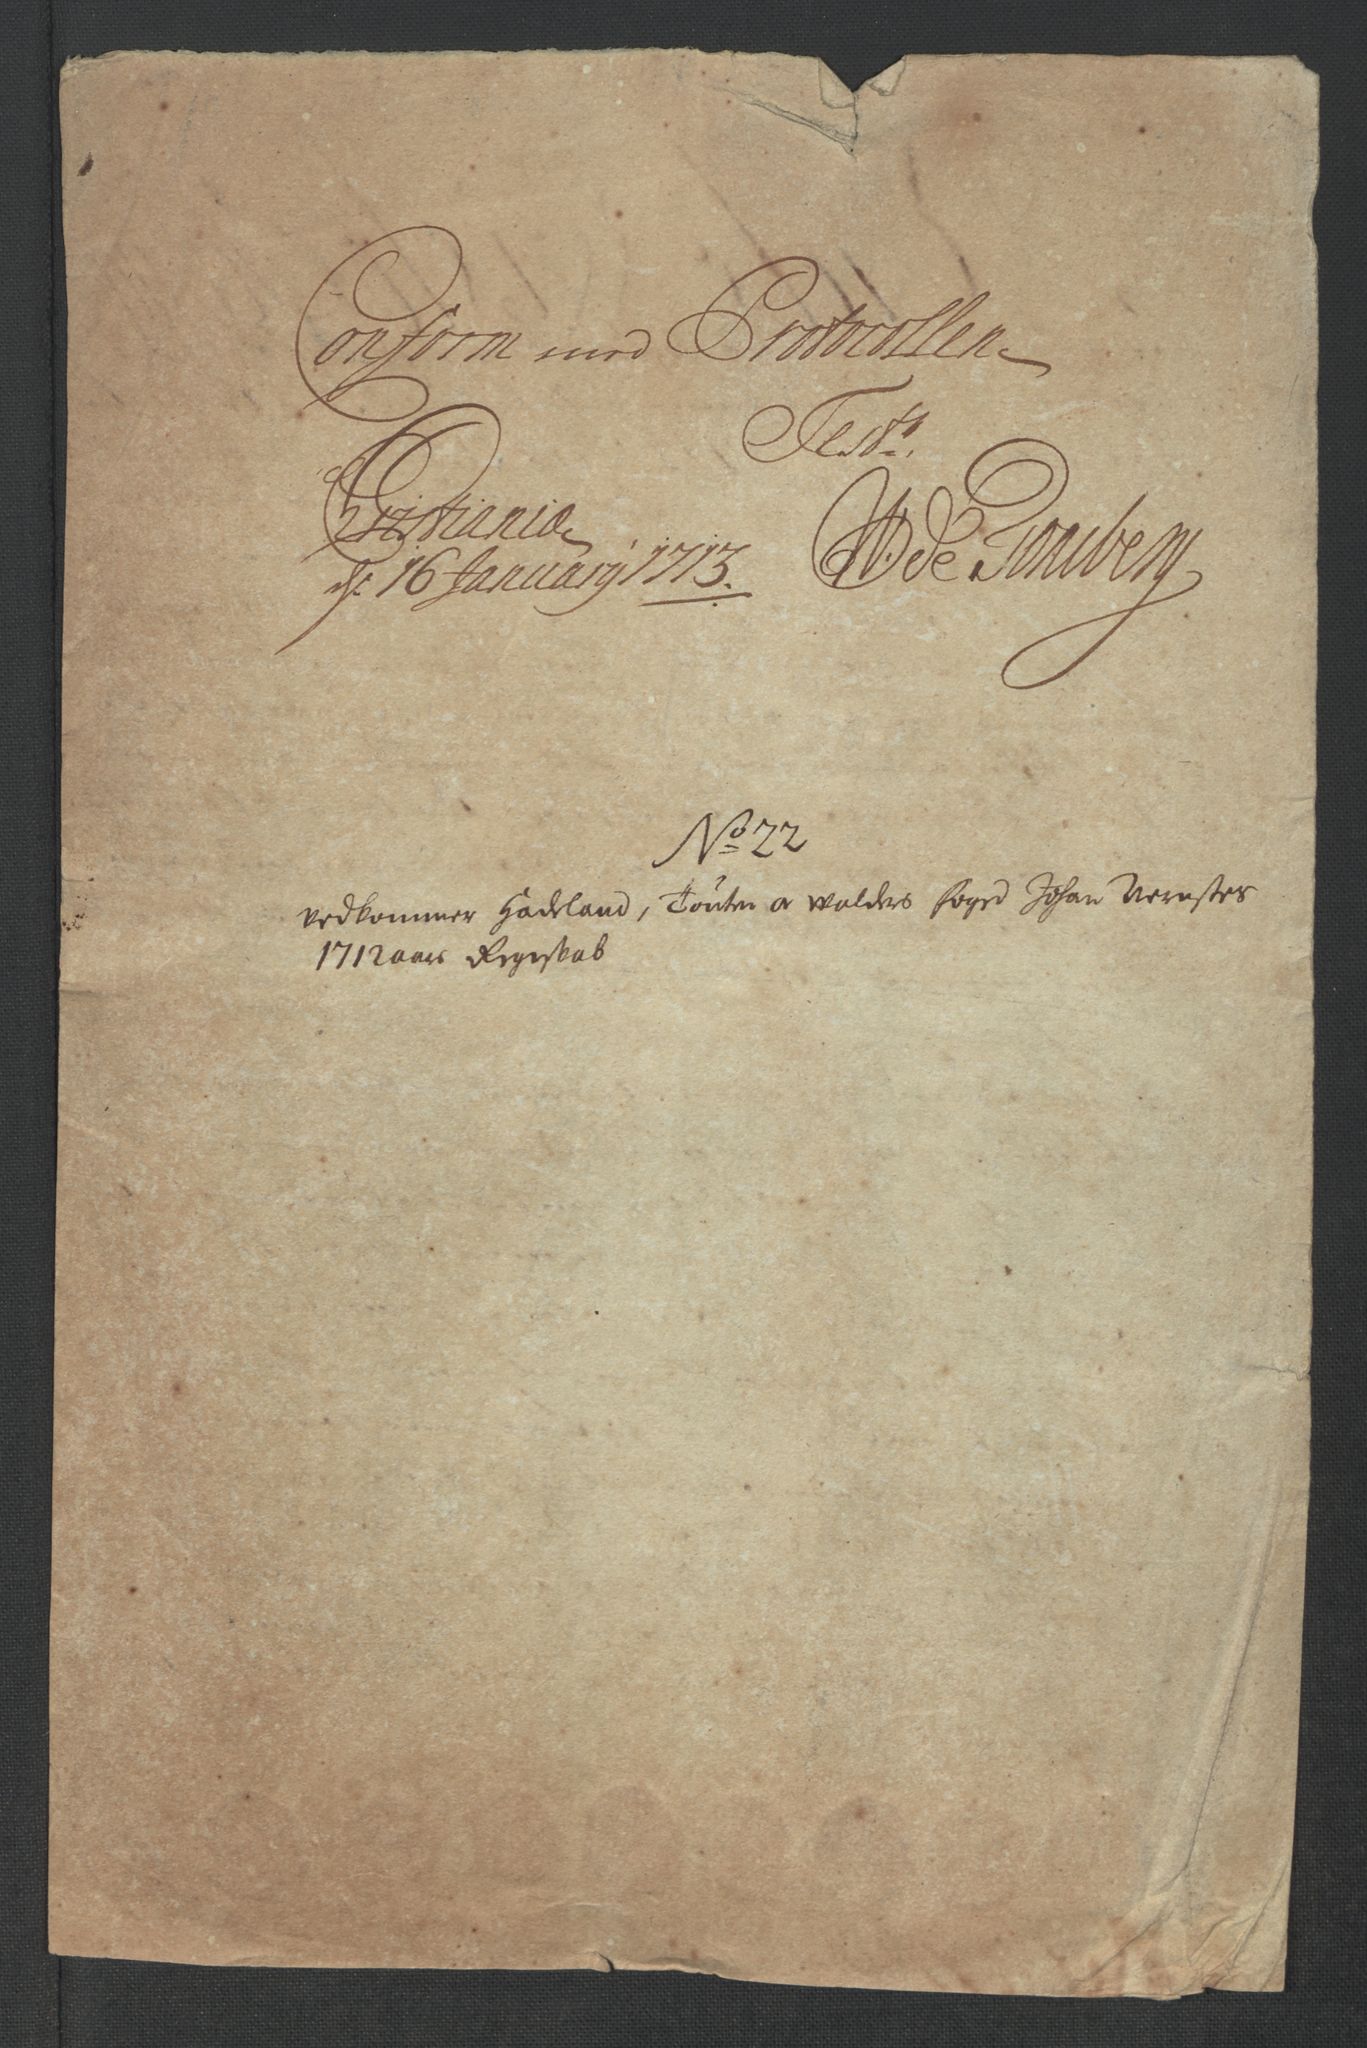 Conform med Protocollen
Test:
Christiania
d: 16 January 1713.
W: de Tonsberg
No 22
vedkommer Hadeland, Toten og Walders foged Johan Vernsters
1712 aars Regnskab